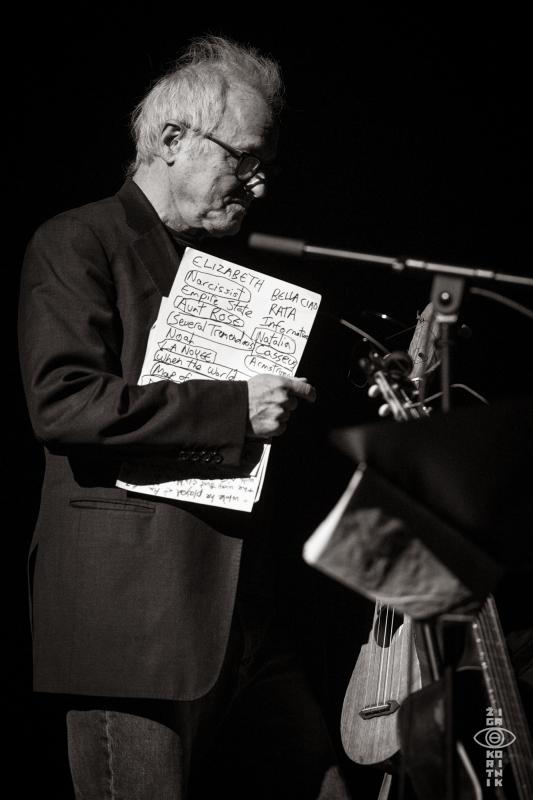 ELIZABETH
Narcissist
Empire State
Aunt ROSE
Several Tremendous
Noah
LA NOYEE
When the World
Map of
BELLA CIAO
RATA
Information
Natalia
Casseur
Armstrong
ŽIGA
KORITNIK